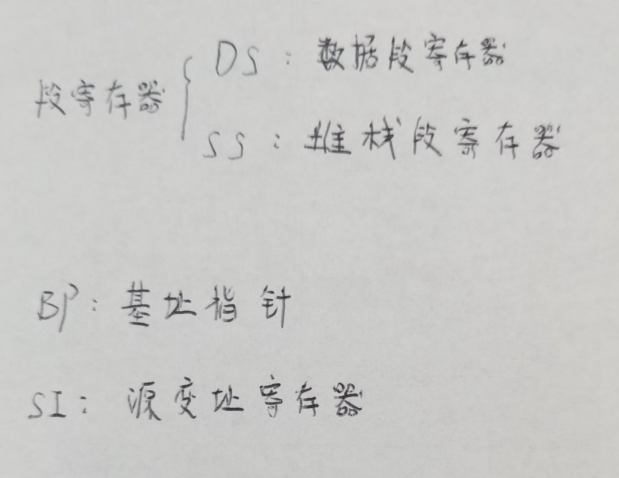 段寄存器
DS：数据段寄存器
SS：堆栈段寄存器
BP：基址指针
SI：源变址寄存器